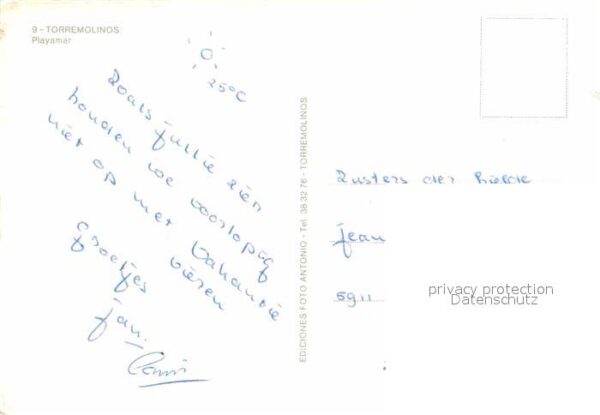 9 - TORREMOLINOS
Playamar
25°C
Zoals jullie zien
houden we voorlopig
niet op met vakantie
vieren
groetjes
Jan.
EDICIONES FOTO ANTONIO - Tel. 38 32 76 - TORREMOLINOS
Zusters der liefde
Jean
5911
privacy protection
Datenschutz